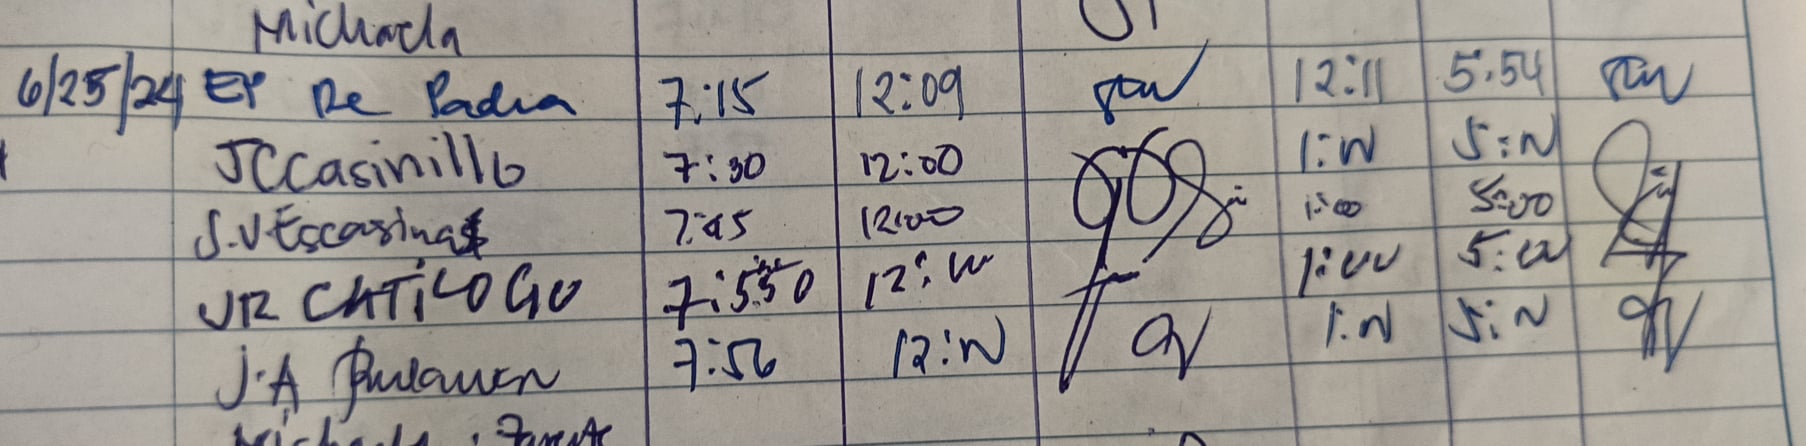 Michaela
6/25/24 EP De Padua 7:15 12:09 12:11 5:54
JCCasinillo 7:30 12:00 1:00 5:00
S.V Escasinas 7:45 12:00 1:00 5:00
JR CATILOGO 7:550 12:00 1:00 5:00
J.A 7:56 12:00 1:00 5:00